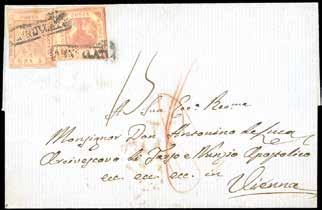 ANNULLATO
15
A Sua Ecc.a Rev.ma
Monsignor Don Antonino de Luca
Arcivescovo di Tarso e Nunzio Apostolico
ecc. ecc. ecc. in
Vienna